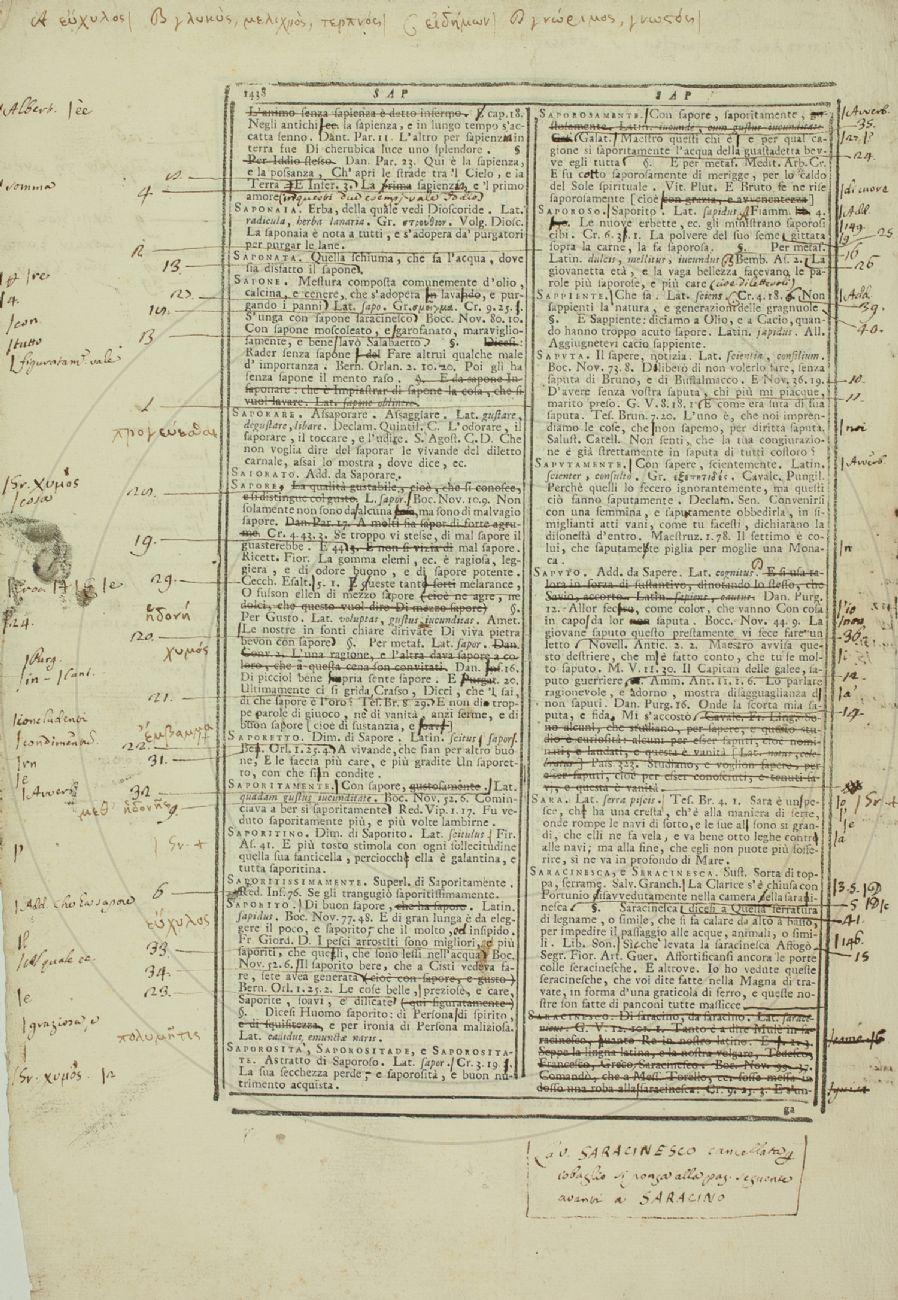 A εὔχυλος| B γλυκὺς, μελιχρὸς, τερπνός| C εἰδήμων| D γνώριμος, γνωστός|
1438 SAP
L'animo senza sapienza è detto infermo. E cap. 18.
Negli antichi è la sapienza, e in lungo tempo s'ac-
catta senno. Dant. Par. 11. L'altro per sapienza in
terra fue Di cherubica luce uno splendore. §
Per Iddio stesso. Dan. Par. 23. Quì è la sapienza,
e la possanza, Ch' aprì le strade tra 'l Cielo, e la
Terra E Infer. 3. La prima sapienzia, e 'l primo
amore
SAPONAIA. Erba, della quale vedi Dioscoride. Lat.
radicula, herba lanaria. Gr. στρουθίον. Volg. Diosc.
La saponaia è nota a tutti, e s'adopera da' purgatori
per purgar le lane.
SAPONATA. Quella schiuma, che fa l'acqua, dove
sia disfatto il sapone.
SAPONE. Mestura composta comunemente d'olio,
calcina, e cenere, che s'adopera in lavando, e pur-
gando i panni. Lat. sapo. Gr. σμῆγμα. Cr. 9. 25. 3.
S'unga con sapone saracinesco. Bocc. Nov. 80. 10.
Con sapone moscoleato, e garofanato, maraviglio-
samente, e bene lavò Salabaetto. §. Dicesi:
Rader senza sapone, del Fare altrui qualche male
d' importanza. Bern. Orlan. 2. 10. 20. Poi gli ha
senza sapone il mento raso. §. E da sapone In-
saponare: che è Impiastrar di sapone la cosa, che si
vuol lavare. Lat. sapone oblinire.
SAPORARE. Assaporare. Assaggiare. Lat. gustare,
degustare, libare. Declam. Quintil. C. L'odorare, il
saporare, il toccare, e l'udire. S. Agost. C. D. Che
non voglia dire del saporar le vivande del diletto
carnale, assai lo mostra, dove dice, ec.
SAPORATO. Add. da Saporare.
SAPORE. La qualità gustabile, cioè, che si conosce,
e si distingue col gusto. L. sapor. Boc. Nov. 10. 9. Non
solamente non sono da alcuna cosa, ma sono di malvagio
sapore. Dan. Par. 17. A molti fia sapor di forte agru-
me. Cr. 4. 43. 3. Se troppo vi stesse, di mal sapore il
guasterebbe. E 44. 3. E non si vizia di mal sapore.
Ricett. Fior. La gomma elemi, ec. è ragiosa, leg-
giera, e di odore buono, e di sapore potente.
Cecch. Esalt. 5. 1. E queste tante forti melarance,
O fusson ellen di mezzo sapore (cioè ne agre, ne
dolci, che questo vuol dire Di mezzo sapore) §.
Per Gusto. Lat. voluptas, gustus iucunditas. Amet.
Le nostre in fonti chiare dirivate Di viva pietra
bevon con sapore. §. Per metaf. Lat. sapor. Dan.
Conv. 2. L'una ragione, e l'altra dava sapore a co-
loro, che a questa cena son convitati. Dan. Inf. 16.
Di picciol bene in pria sente sapore. E Purgat. 20.
Ultimamente ci si grida, Crasso, Dicci, che 'l sai,
di che sapore è l'oro? Tes. Br. 8. 29. E non di trop-
pe parole di giuoco, nè di vanità, anzi ferme, e di
buon sapore (cioè di sustanzia, e gravi)
SAPORETTO. Dim. di Sapore. Latin. scitus sapor.
Ber. Orl. 1. 25. 2. A vivande, che sian per altro buo-
ne, E le faccia più care, e più gradite Un saporet-
to, con che sien condite.
SAPORITAMENTE. Con sapore, gustosamente. Lat.
quadam gustus iucunditate. Boc. Nov. 52. 6. Comin-
ciava a ber sì saporitamente. Red. Vip. 1. 17. Fu ve-
duto saporitamente più, e più volte lambirne.
SAPORITINO. Dim. di Saporito. Lat. scitulus. Fir.
As. 41. E più tosto stimola con ogni sollecitudine
quella sua fanticella, perciocchè ella è galantina, e
tutta saporitina.
SAPORITISSIMAMENTE. Superl. di Saporitamente.
Red. Ins. 76. Se gli trangugiò saporitissimamente.
SAPORITO. Di buon sapore, che ha sapore. Latin.
sapidus. Boc. Nov. 77. 48. E di gran lunga è da eleg-
gere il poco, e saporito, che il molto, ed insipido.
Fr. Giord. D. I pesci arrostiti sono migliori, e più
saporiti, che quelli, che sono lessi nell'acqua. Boc.
Nov. 52. 6. Il saporito bere, che a Cisti vedeva fa-
re, sete avea generata (cioè con sapore, e gusto)
Bern. Orl. 1. 25. 2. Le cose belle, preziose, e care,
Saporite, soavi, e dilicate (qui figuratamente)
§. Dicesi Huomo saporito: di Persona di spirito,
e di squisitezza, e per ironia di Persona maliziosa.
Lat. callidus, emunctae naris.
SAPORITÀ, SAPORITADE, e SAPORITA-
TE. Astratto di Saporoso. Lat. sapor. Cr. 3. 19. 3.
La sua secchezza perde, e saporosità, e buon nu-
trimento acquista.
SAP
SAPOROSAMENTE. Con sapore, saporitamente, gu-
stosamente. Latin. iucunde, cum gustus iucunditate.
Galat. Maestro questi chi è, e per qual ca-
gione sì saporitamente l'acqua della guastadetta bev-
ve egli tutta §. E per metaf. Medit. Arb. Cr.
E fu cotto saporosamente di merigge, per lo caldo
del Sole spirituale. Vit. Plut. E Bruto se ne rise
saporosamente [cioè con grazia, e avvenentezza]
SAPOROSO. Saporito. Lat. sapidus. Fiamm. 4.
Le nuove erbette, ec. gli ministrano saporosi
cibi. Cr. 6. 3. 1. La polvere del suo seme gittata
sopra la carne, la fa saporosa. §. Per metaf.
Latin. dulcis, mellitus, iucundus. Bemb. As. 2. La
giovanetta età, e la vaga bellezza facevano le pa-
role più saporose, e più care (cioè dilettevoli)
SAPPIENTE. Che sa. Lat. sciens. Cr. 4. 18. 6. Non
sappienti la natura, e generazion delle gragnuole
§. E Sappiente: diciamo a Olio, e a Cacio, quan-
do hanno troppo acuto sapore. Latin. sapidus. All.
Aggiugnetevi cacio sappiente.
SAPUTA. Il sapere, notizia. Lat. scientia, consilium.
Boc. Nov. 73. 8. Diliberò di non volerlo fare, senza
saputa di Bruno, e di Buffalmacco. E Nov. 36. 19.
D'avere senza vostra saputa, chi più mi piacque,
marito preso. G. V. 8. 18. 1. E come era sura di sua
saputa. Tes. Brun. 7. 20. L'uno è, che noi impren-
diamo le cose, che non sapemo, per diritta saputa.
Salust. Catell. Non senti, che la tua congiurazio-
ne è già strettamente in saputa di tutti costoro?
SAPUTAMENTE. Con sapere, scientemente. Latin.
scienter, consulto. Gr. ἐξεπίτηδες. Cavalc. Pungil.
Perchè quelli lo fecero ignorantemente, ma questi
ciò fanno saputamente. Declam. Sen. Convenirsi
con una femmina, e saputamente obbedirla, in si-
miglianti atti vani, come tu facesti, dichiarano la
disonestà d'entro. Maestruz. 1. 78. Il settimo è co-
lui, che saputamente piglia per moglie una Mona-
ca.
SAPUTO. Add. da Sapere. Lat. cognitus. E si usa ta-
lora in forza di sustantivo, dinotando lo stesso, che
Savio, accorto. Latin. sapiens, cautus. Dan. Purg.
12. Allor fec'io, come color, che vanno Con cosa
in capo da lor non saputa. Bocc. Nov. 44. 9. La
giovane saputo questo prestamente vi fece fare un
letto. Novell. Antic. 2. 2. Maestro avvisa que-
sto destriere, che m'è fatto conto, che tu se' mol-
to saputo. M. V. 11. 30. Il Capitan delle galee, sa-
puto guerriere, ec. Amm. Ant. 11. 1. 6. Lo parlare
ragionevole, e adorno, mostra disagguaglianza di
non saputi. Dan. Purg. 16. Onde la scorta mia sa-
puta, e fida, Mi s'accostò. Cavalc. Fr. Ling. So-
no alcuni, che studiano, per sapere, e questo stu-
dio è curiosità: alcuni per esser saputi, cioè nomi-
nati, e laudati, e questa è vanità
Pass. 323. Studiano, e voglion sapere, per
esser saputi, cioè per esser conosciuti, e tenuti sa-
vi, e questa è vanità.
SARA. Lat. serra piscis. Tes. Br. 4. 1. Sara è un pe-
sce, che ha una cresta, ch'è alla maniera di serre,
onde rompe le navi di sotto, e le sue ali sono sì gran-
di, che elli ne fa vela, e va bene otto leghe contro
alle navi; ma alla fine, che egli non puote più soffe-
rire, sì ne va in profondo di Mare.
SARACINESCA, e SERACINESCA. Sust. Sorta di top-
pa, serrame. Salv. Granch. La Clarice s'è chiusa con
Fortunio disavvedutamente nella camera della saraci-
nesca §. Saracinesca dicesi a Quella serratura
di legname, o simile, che si fa calare da alto a basso,
per impedire il passaggio alle acque, animali, o simi-
li. Lib. Son. Sicchè levata la saracinesca Affogò.
Segr. Fior. Art. Guer. Affortificansi ancora le porte
colle seracinesche. E altrove. Io ho vedute queste
seracinesche, che voi dite fatte nella Magna di tra-
vate, in forma d'una graticola di ferro, e queste no-
stre son fatte di panconi tutte massicce.
SARACINESCO. Di saracino, da saracino. Lat. sarace-
nicus. G. V. 12. 101. 1. Tanto è a dire Mulè in sa-
racinesco, quanto Re in nostro latino. E
Seppe la lingua latina, e la nostra volgare, Tedesco,
Francesco, Greco, Saracinesco. Boc. Nov. 99. 37.
Comandò, che a Mess. Torello, ec. fosse messa in-
dosso una roba alla saracinesca. Cr. 9. 25. 3. E s'un-
ga
Albert. | èe
4
13.
|con
|tutto
|figuratam. vale
προγεύεσθαι
|Gr. χυμὸς
|cosa
19.
29.
ἡδονή
120.
χυμός
|Purg.
21.
ἔμβαμμα
22.
31.
32.
μεθ' ἡδονῆς
9.
6
εὔχυλος
33.
34.
23.
|graziosa, e
πολυμῆτις
|Gr. χυμὸς
|Avverb.
35.
24.
|di cuore
|Add.
25
26
|Add.
39.
40.
10.
11.
|noi
|Avverb.
12.
14.
|Gr +
41.
15
La v. SARACINESCO cancellata q
sbaglio si ponga alla pag. seguente
avanti a SARACINO